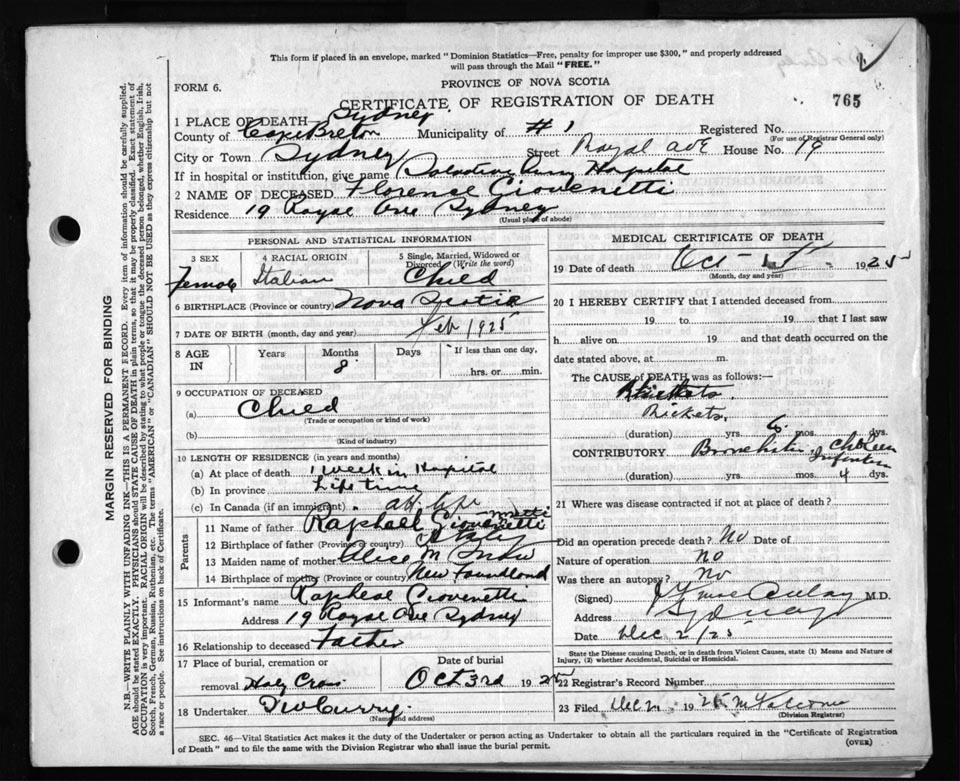 This form if placed in an envelope, marked "Dominion Statistics—Free, penalty for improper use $300," and properly addressed
will pass through the Mail "FREE."
FORM 6.
PROVINCE OF NOVA SCOTIA
CERTIFICATE OF REGISTRATION OF DEATH
765
1 PLACE OF DEATH Sydney
County of Cape Breton Municipality of #1 Registered No.
(For use of Registrar General only)
City or Town Sydney Street Royal Ave House No. 19
If in hospital or institution, give name Army Hospital
2 NAME OF DECEASED Florence Giovenetti
Residence 19 Royal Ave Sydney
(Usual place of abode)
PERSONAL AND STATISTICAL INFORMATION
3 SEX Female
4 RACIAL ORIGIN Italian
5 Single, Married, Widowed or Divorced (Write the word) Child
6 BIRTHPLACE (Province or country) Nova Scotia
7 DATE OF BIRTH (month, day and year) Feb 1925
8 AGE IN Years Months 8 Days If less than one day, hrs. or min.
9 OCCUPATION OF DECEASED
(a) Child
(Trade or occupation or kind of work)
(b)
(Kind of industry)
10 LENGTH OF RESIDENCE (in years and months)
(a) At place of death 1 week in Hospital
(b) In province Life time
(c) In Canada (if an immigrant)
Parents
11 Name of father Raphael Giovenetti
12 Birthplace of father (Province or country) Italy
13 Maiden name of mother Alice M Snow
14 Birthplace of mother (Province or country) New Foundland
15 Informant's name Rapheal Giovenetti
Address 19 Royal Ave Sydney
16 Relationship to deceased Father
17 Place of burial, cremation or removal Holy Cross
Date of burial Oct 3rd 1925
18 Undertaker Curry
(Name and address)
MEDICAL CERTIFICATE OF DEATH
19 Date of death Oct 1925
(Month, day and year)
20 I HEREBY CERTIFY that I attended deceased from
19 to 19 that I last saw
h alive on 19 and that death occurred on the
date stated above, at m.
The CAUSE of DEATH was as follows:—
Rickets
(duration) yrs. 6 mos. dys.
CONTRIBUTORY Bronchitis Cholera Infantum
(duration) yrs. mos. 4 dys.
21 Where was disease contracted if not at place of death?
Did an operation precede death? No Date of
Nature of operation no
Was there an autopsy? no
(Signed) M.D.
Address Sydney
Date Dec 2/25
State the Disease causing Death, or in death from Violent Causes, state (1) Means and Nature of
Injury, (2) whether Accidental, Suicidal or Homicidal.
22 Registrar's Record Number
23 Filed Dec 2 1925
(Division Registrar)
SEC. 46—Vital Statistics Act makes it the duty of the Undertaker or person acting as Undertaker to obtain all the particulars required in the "Certificate of Registration
of Death" and to file the same with the Division Registrar who shall issue the burial permit.
(OVER)
MARGIN RESERVED FOR BINDING
N.B.—WRITE PLAINLY WITH UNFADING INK—THIS IS A PERMANENT RECORD. Every item of information should be carefully supplied.
AGE should be stated EXACTLY. PHYSICIANS should STATE CAUSE OF DEATH in plain terms, so that it may be properly classified. Exact statement of
OCCUPATION is very important. RACIAL ORIGIN will be described by stating to what people or tongue the deceased person belonged, whether English, Irish,
Scotch, French, German, Russian, Ruthenian, etc. The terms "AMERICAN" or "CANADIAN" SHOULD NOT BE USED as they express citizenship but not
a race or people. See instructions on back of Certificate.